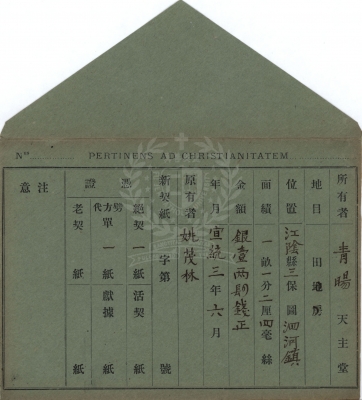 Nº PERTINENS AD CHRISTIANITATEM
所有者 青暘 天主堂
地目 田地房
位置 江陰縣三保圖泗河鎮
面積 一畝一分二厘四毫 絲
金額 銀壹兩
年月 宣統三年六月
原有者 姚茂林
新契紙 字第 號
憑證 絕契 一紙 活契 紙
代方單 一紙 獻據 紙
老契 紙 紙
注意